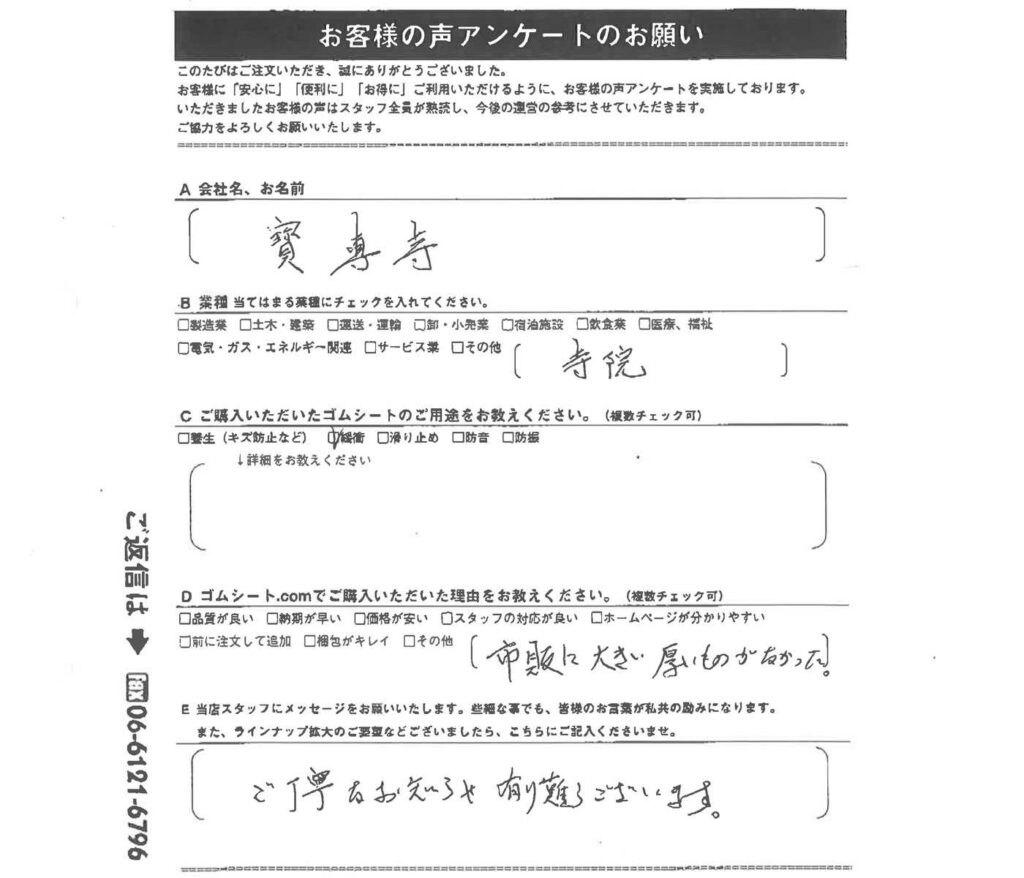 お客様の声アンケートのお願い
このたびはご注文いただき、誠にありがとうございました。
お客様に「安心に」「便利に」「お得に」ご利用いただけるように、お客様の声アンケートを実施しております。
いただきましたお客様の声はスタッフ全員が熟読し、今後の運営の参考にさせていただきます。
ご協力をよろしくお願いいたします。
A 会社名、お名前
寳専寺
B 業種 当てはまる業種にチェックを入れてください。
□製造業 □土木・建築 □運送・運輸 □卸・小売業 □宿泊施設 □飲食業 □医療、福祉
□電気・ガス・エネルギー関連 □サービス業 □その他 寺院
C ご購入いただいたゴムシートのご用途をお教えください。（複数チェック可）
□養生（キズ防止など） ☑緩衝 □滑り止め □防音 □防振
↓詳細をお教えください
D ゴムシート.comでご購入いただいた理由をお教えください。（複数チェック可）
□品質が良い □納期が早い □価格が安い □スタッフの対応が良い □ホームページが分かりやすい
□前に注文して追加 □梱包がキレイ □その他 市販に大きい厚いものがなかった。
E 当店スタッフにメッセージをお願いいたします。些細な事でも、皆様のお言葉が私共の励みになります。
また、ラインナップ拡大のご要望などございましたら、こちらにご記入くださいませ。
ご丁寧なお知らせ有り難うございます。
ご返信は ➡ fax 06-6121-6796